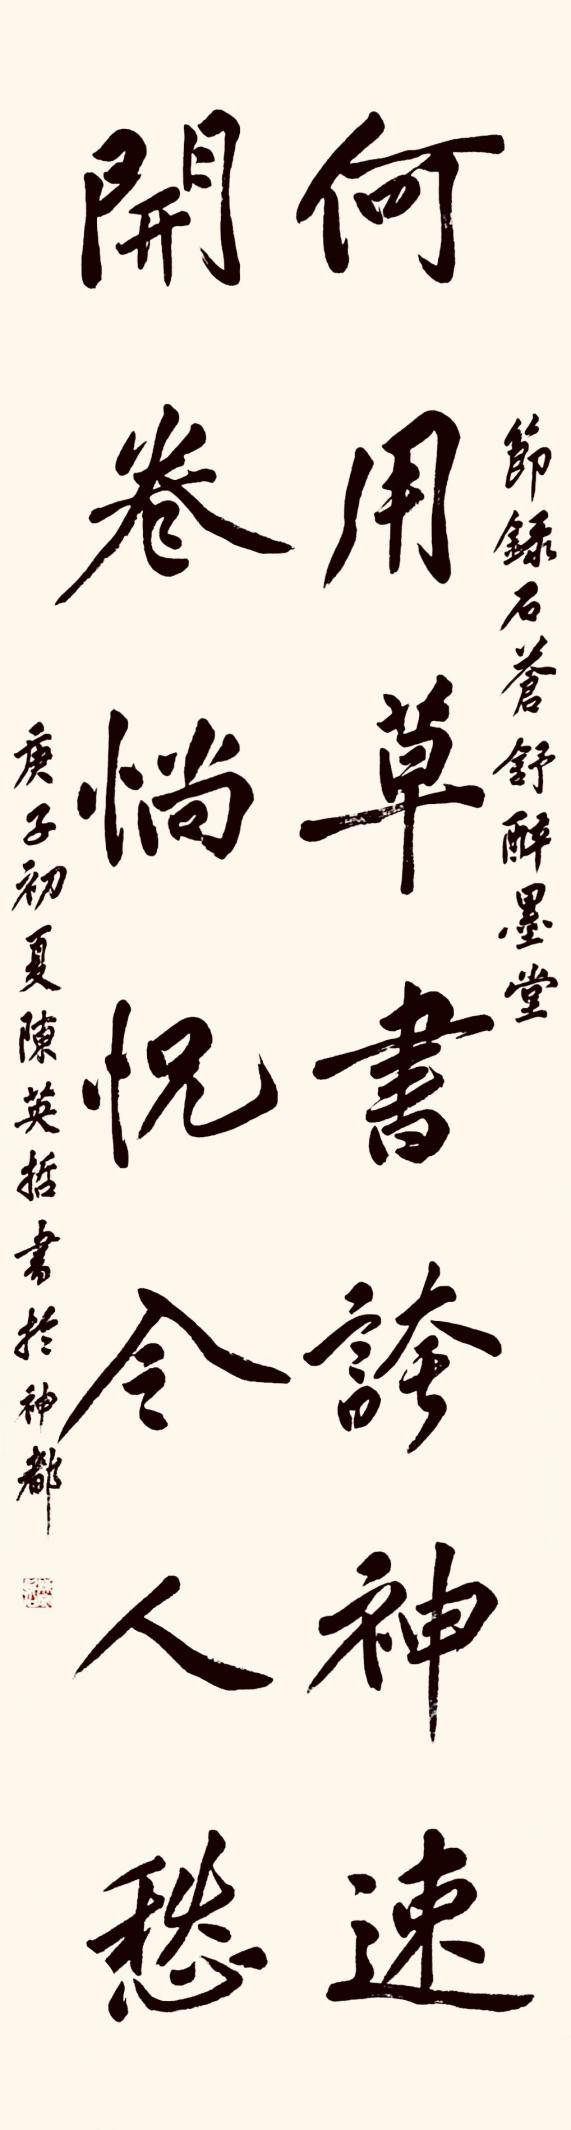 何用草書誇神速
開卷惝怳令人愁
節録石蒼舒醉墨堂
庚子初夏陳英哲書於神都